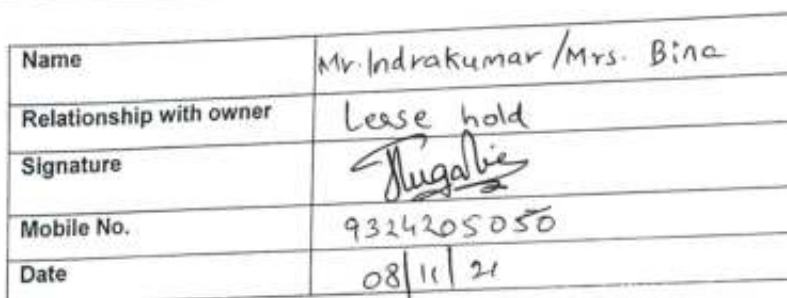 Name Mr. Indrakumar / Mrs. Bina
Relationship with owner Lease hold
Signature
Mobile No. 9324205050
Date 08/11/21